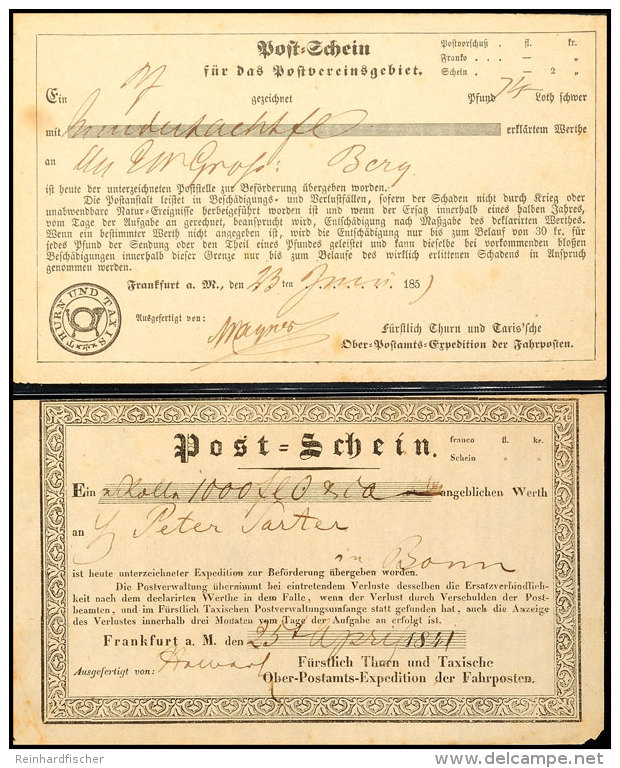 Post-Schein
für das Postvereinsgebiet.
Postvorschuß . fl. kr.
Franko . . . — „
Schein . . — 2 „
Ein gezeichnet Pfund 7/4 Loth schwer
mit hundertachtfl erklärtem Werthe
an Berg
ist heute der unterzeichneten Poststelle zur Beförderung übergeben worden.
Die Postanstalt leistet in Beschädigungs- und Verlustfällen, sofern der Schaden nicht durch Krieg oder
unabwendbare Natur-Ereignisse herbeigeführt worden ist und wenn der Ersatz innerhalb eines halben Jahres,
vom Tage der Aufgabe an gerechnet, beansprucht wird, Entschädigung nach Maßgabe des deklarirten Werthes.
Wenn ein bestimmter Werth nicht angegeben ist, wird die Entschädigung nur bis zum Belauf von 30 kr. für
jedes Pfund der Sendung oder den Theil eines Pfundes geleistet und kann dieselbe bei vorkommenden bloßen
Beschädigungen innerhalb dieser Grenze nur bis zum Belaufe des wirklich erlittenen Schadens in Anspruch
genommen werden.
Frankfurt a. M., den 23 ten Juni 185
THURN UND TAXIS
Ausgefertigt von: Wagner
Fürstlich Thurn und Taxis'sche
Ober-Postamts-Expedition der Fahrposten.
Post-Schein.
franco fl. kr.
Schein „ „
Ein Rolle 1000 fl angeblichen Werth
an Peter Sarter
in Bonn
ist heute unterzeichneter Expedition zur Beförderung übergeben worden.
Die Postverwaltung übernimmt bei eintretendem Verluste desselben die Ersatzverbindlich-
keit nach dem declarirten Werthe in dem Falle, wenn der Verlust durch Verschulden der Post-
beamten, und im Fürstlich Taxischen Postverwaltungsumfange statt gefunden hat, auch die Anzeige
des Verlustes innerhalb drei Monaten vom Tage der Aufgabe an erfolgt ist.
Frankfurt a. M. den 25t April 1841
Ausgefertigt von:
Fürstlich Thurn und Taxische
Ober-Postamts-Expedition der Fahrposten.
Reinhardfischer
delcampe.net